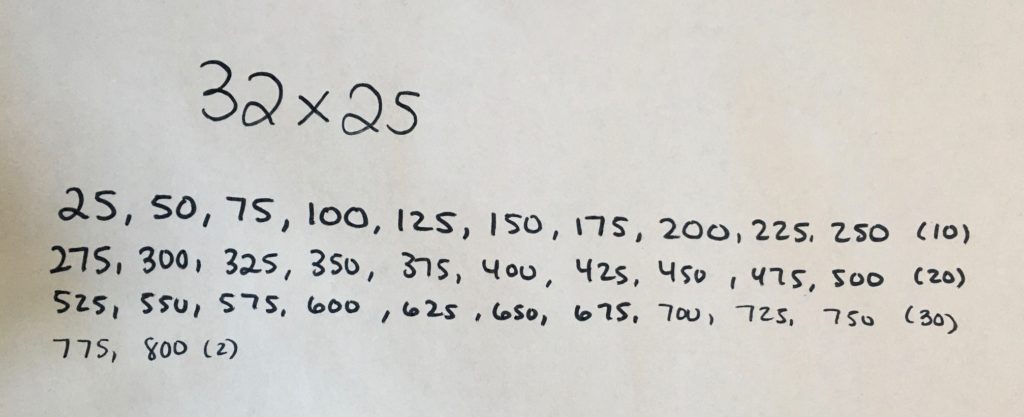 32×25
25, 50, 75, 100, 125, 150, 175, 200, 225. 250 (10)
275, 300, 325, 350, 375, 400, 425, 450, 475, 500 (20)
525, 550, 575, 600, 625, 650, 675, 700, 725, 750 (30)
775, 800 (2)